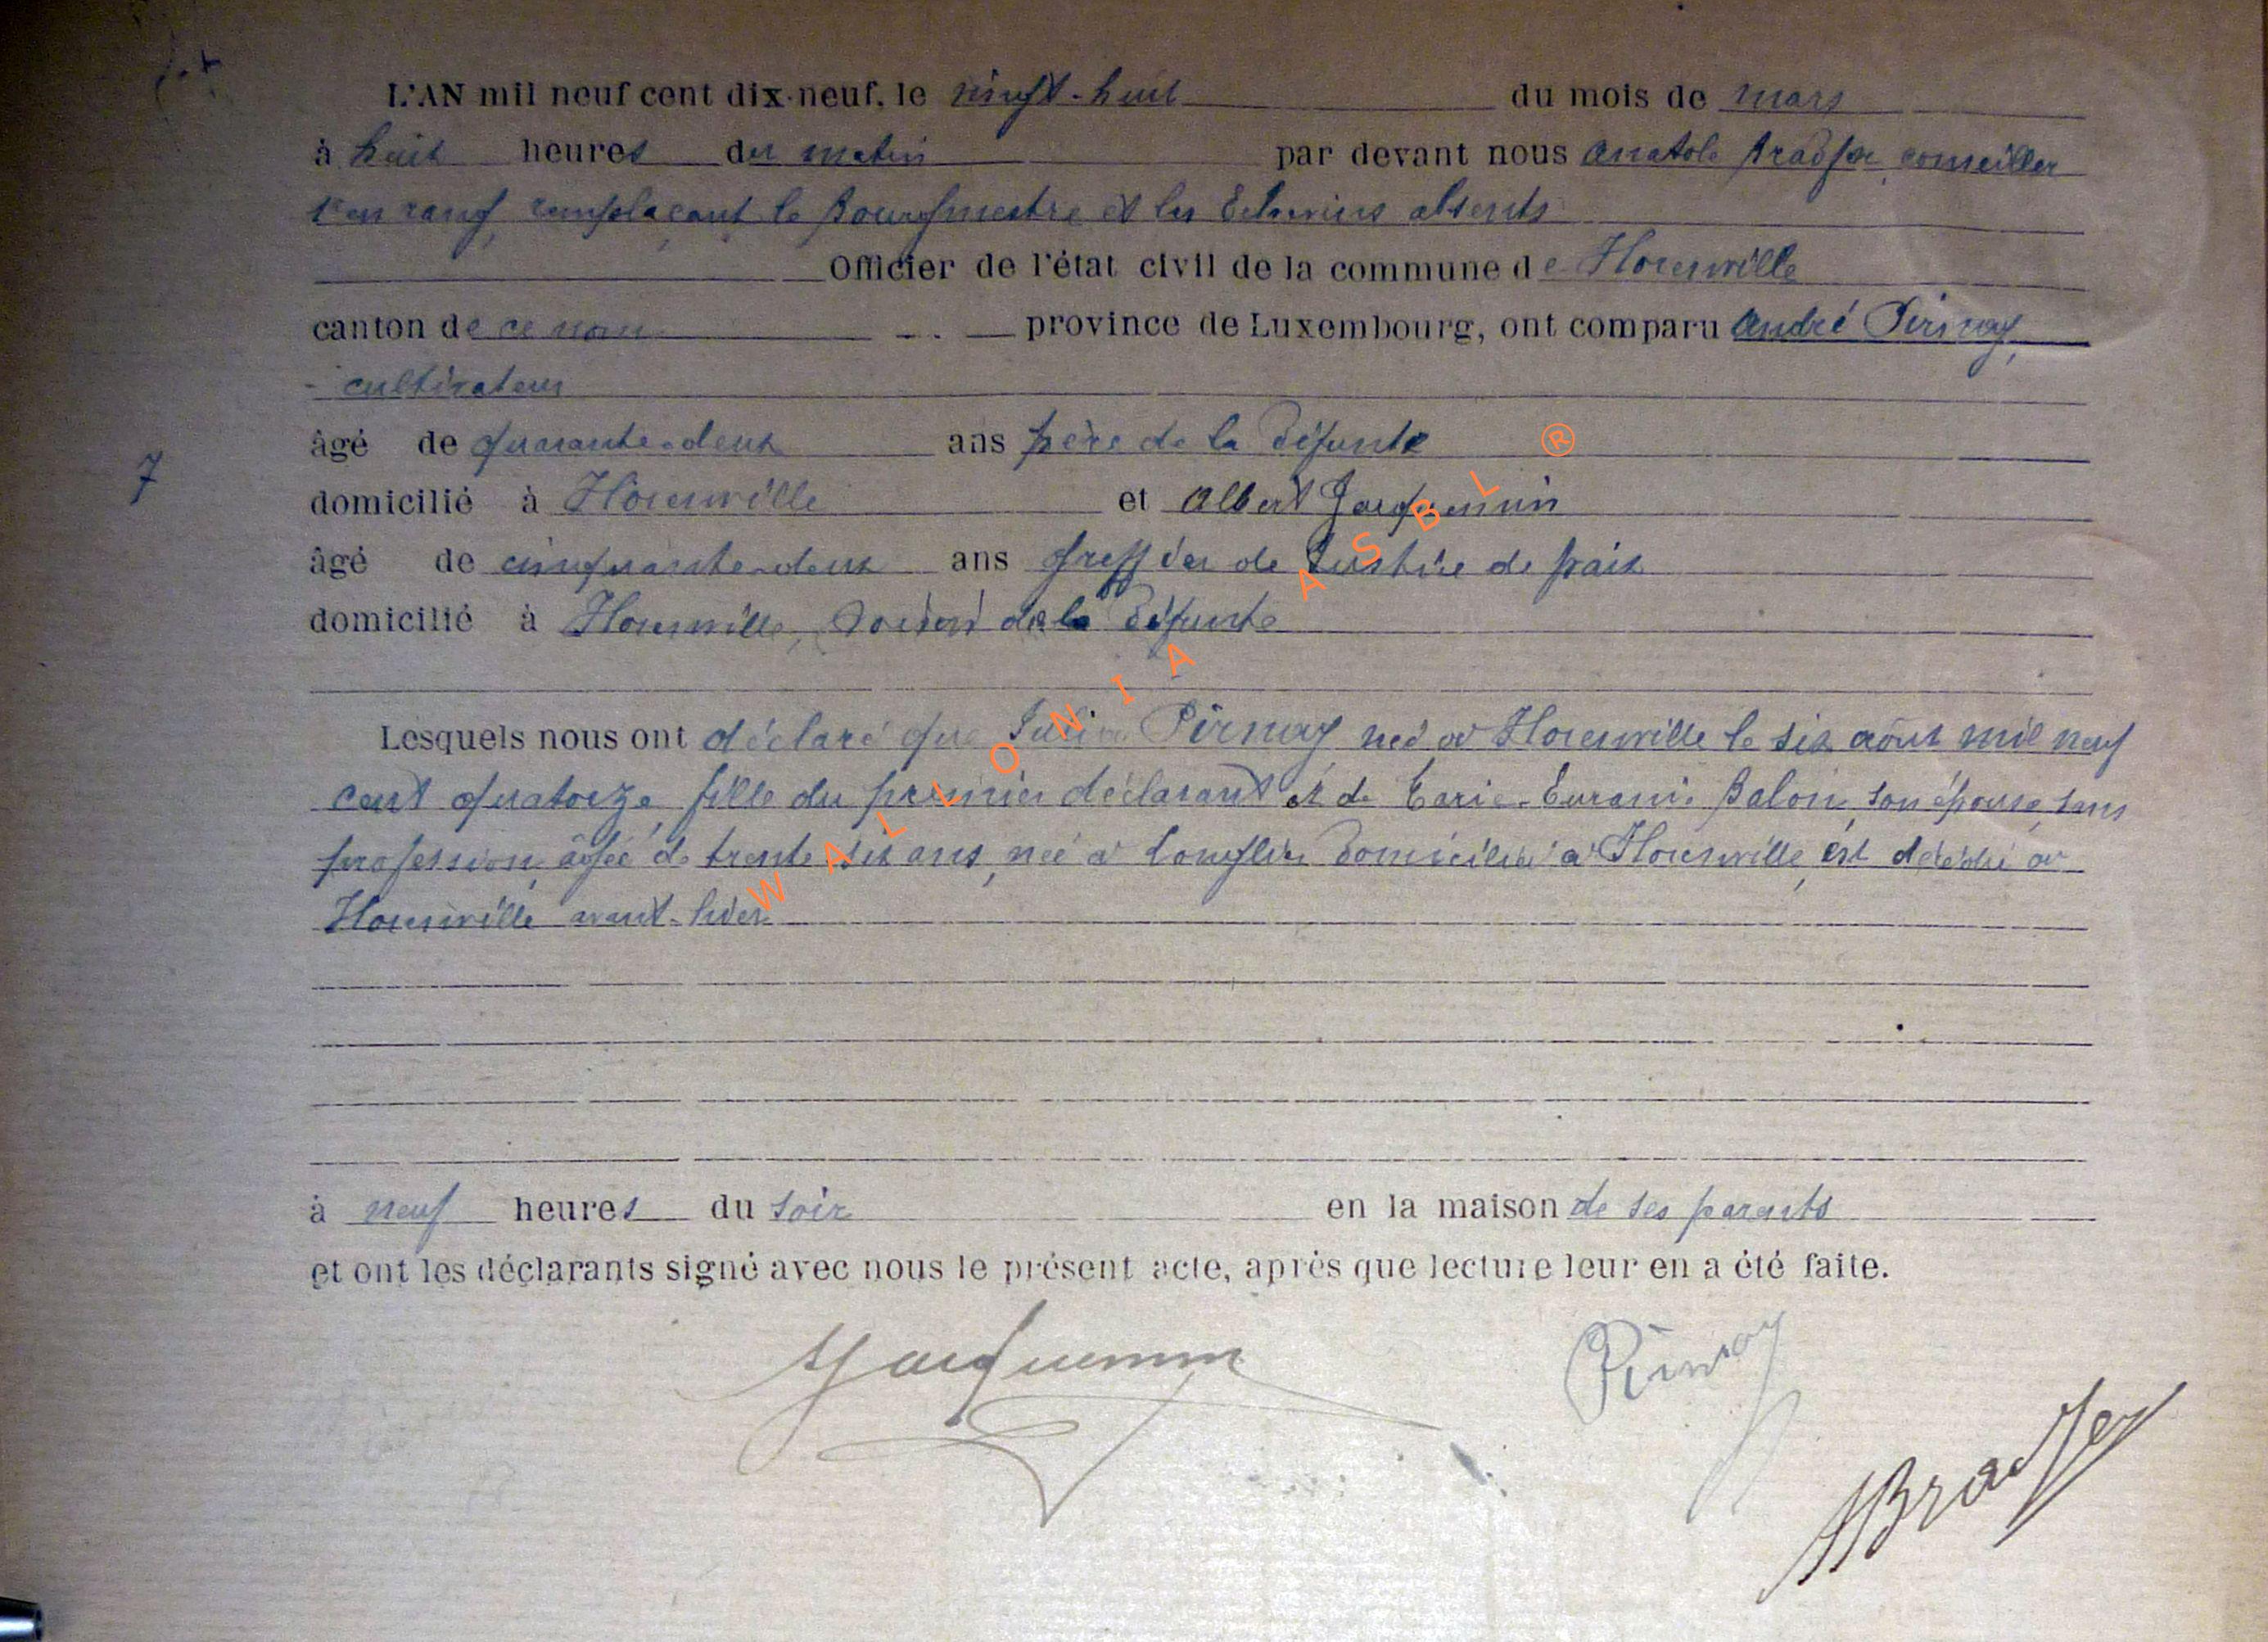 L'AN mil neuf cent dix-neuf, le vingt-huit du mois de mars
à huit heures du matin par devant nous Anatole Bradfer, conseiller
1er en rang, remplaçant le Bourgmestre et les Echevins absents
Officier de l'état civil de la commune de Florenville
canton de ce nom province de Luxembourg, ont comparu André Pirnay,
cultivateur
âgé de quarante-deux ans père de la défunte
domicilié à Florenville et Albert Jacquemin
âgé de cinquante-deux ans greffier de Justice de paix
7
domicilié à Florenville, voisin de la défunte
Lesquels nous ont déclaré que Pirnay née à Florenville le six août mil neuf
cent quatorze, fille du premier déclarant et de Marie-Euranie Balon, son épouse, sans
profession, âgée de trente six ans, née à Longlier domiciliée à Florenville, est décédée à
Florenville avant-hier
à neuf heures du soir en la maison de ses parents
et ont les déclarants signé avec nous le présent acte, après que lecture leur en a été faite.
Jacquemin Pirnay
ABradfer
WALLONIA ASBL ®